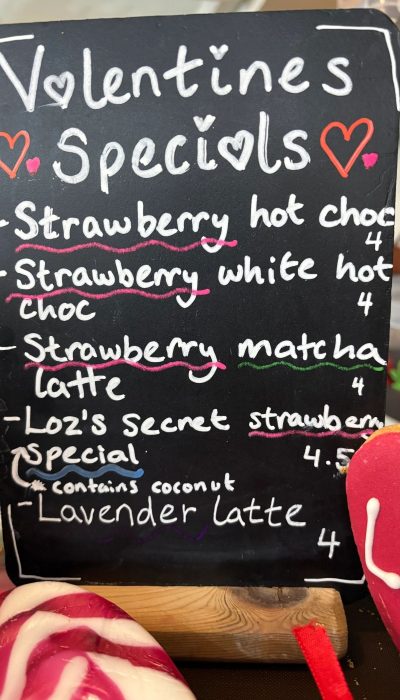 Valentines
Specials
-Strawberry hot choc
4
-Strawberry white hot
choc 4
- Strawberry matcha
latte 4
-Loz's secret strawberry
special 4.5
* contains coconut
-Lavender latte
4